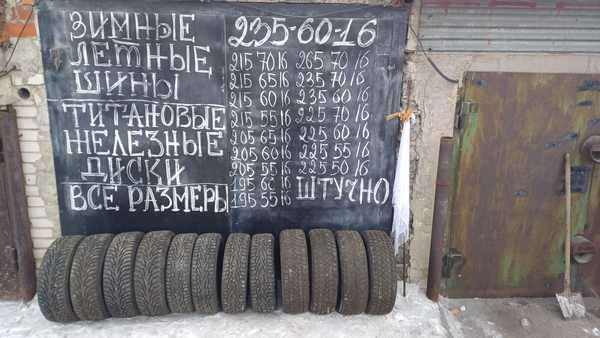 ЗИМНЫЕ
ЛЕТНЫЕ
ШИНЫ
ТИТАНОВЫЕ
ЖЕЛЕЗНЫЕ
ДИСКИ
ВСЕ РАЗМЕРЫ
235-60-16
215 70 16 265 70 16
215 65 16 235 70 16
215 60 16 235 60 16
215 55 16 225 70 16
205 65 16 225 60 16
205 60 16 225 55 16
205 55 16 225 50 16
195 60 16 ШТУЧНО
195 55 16